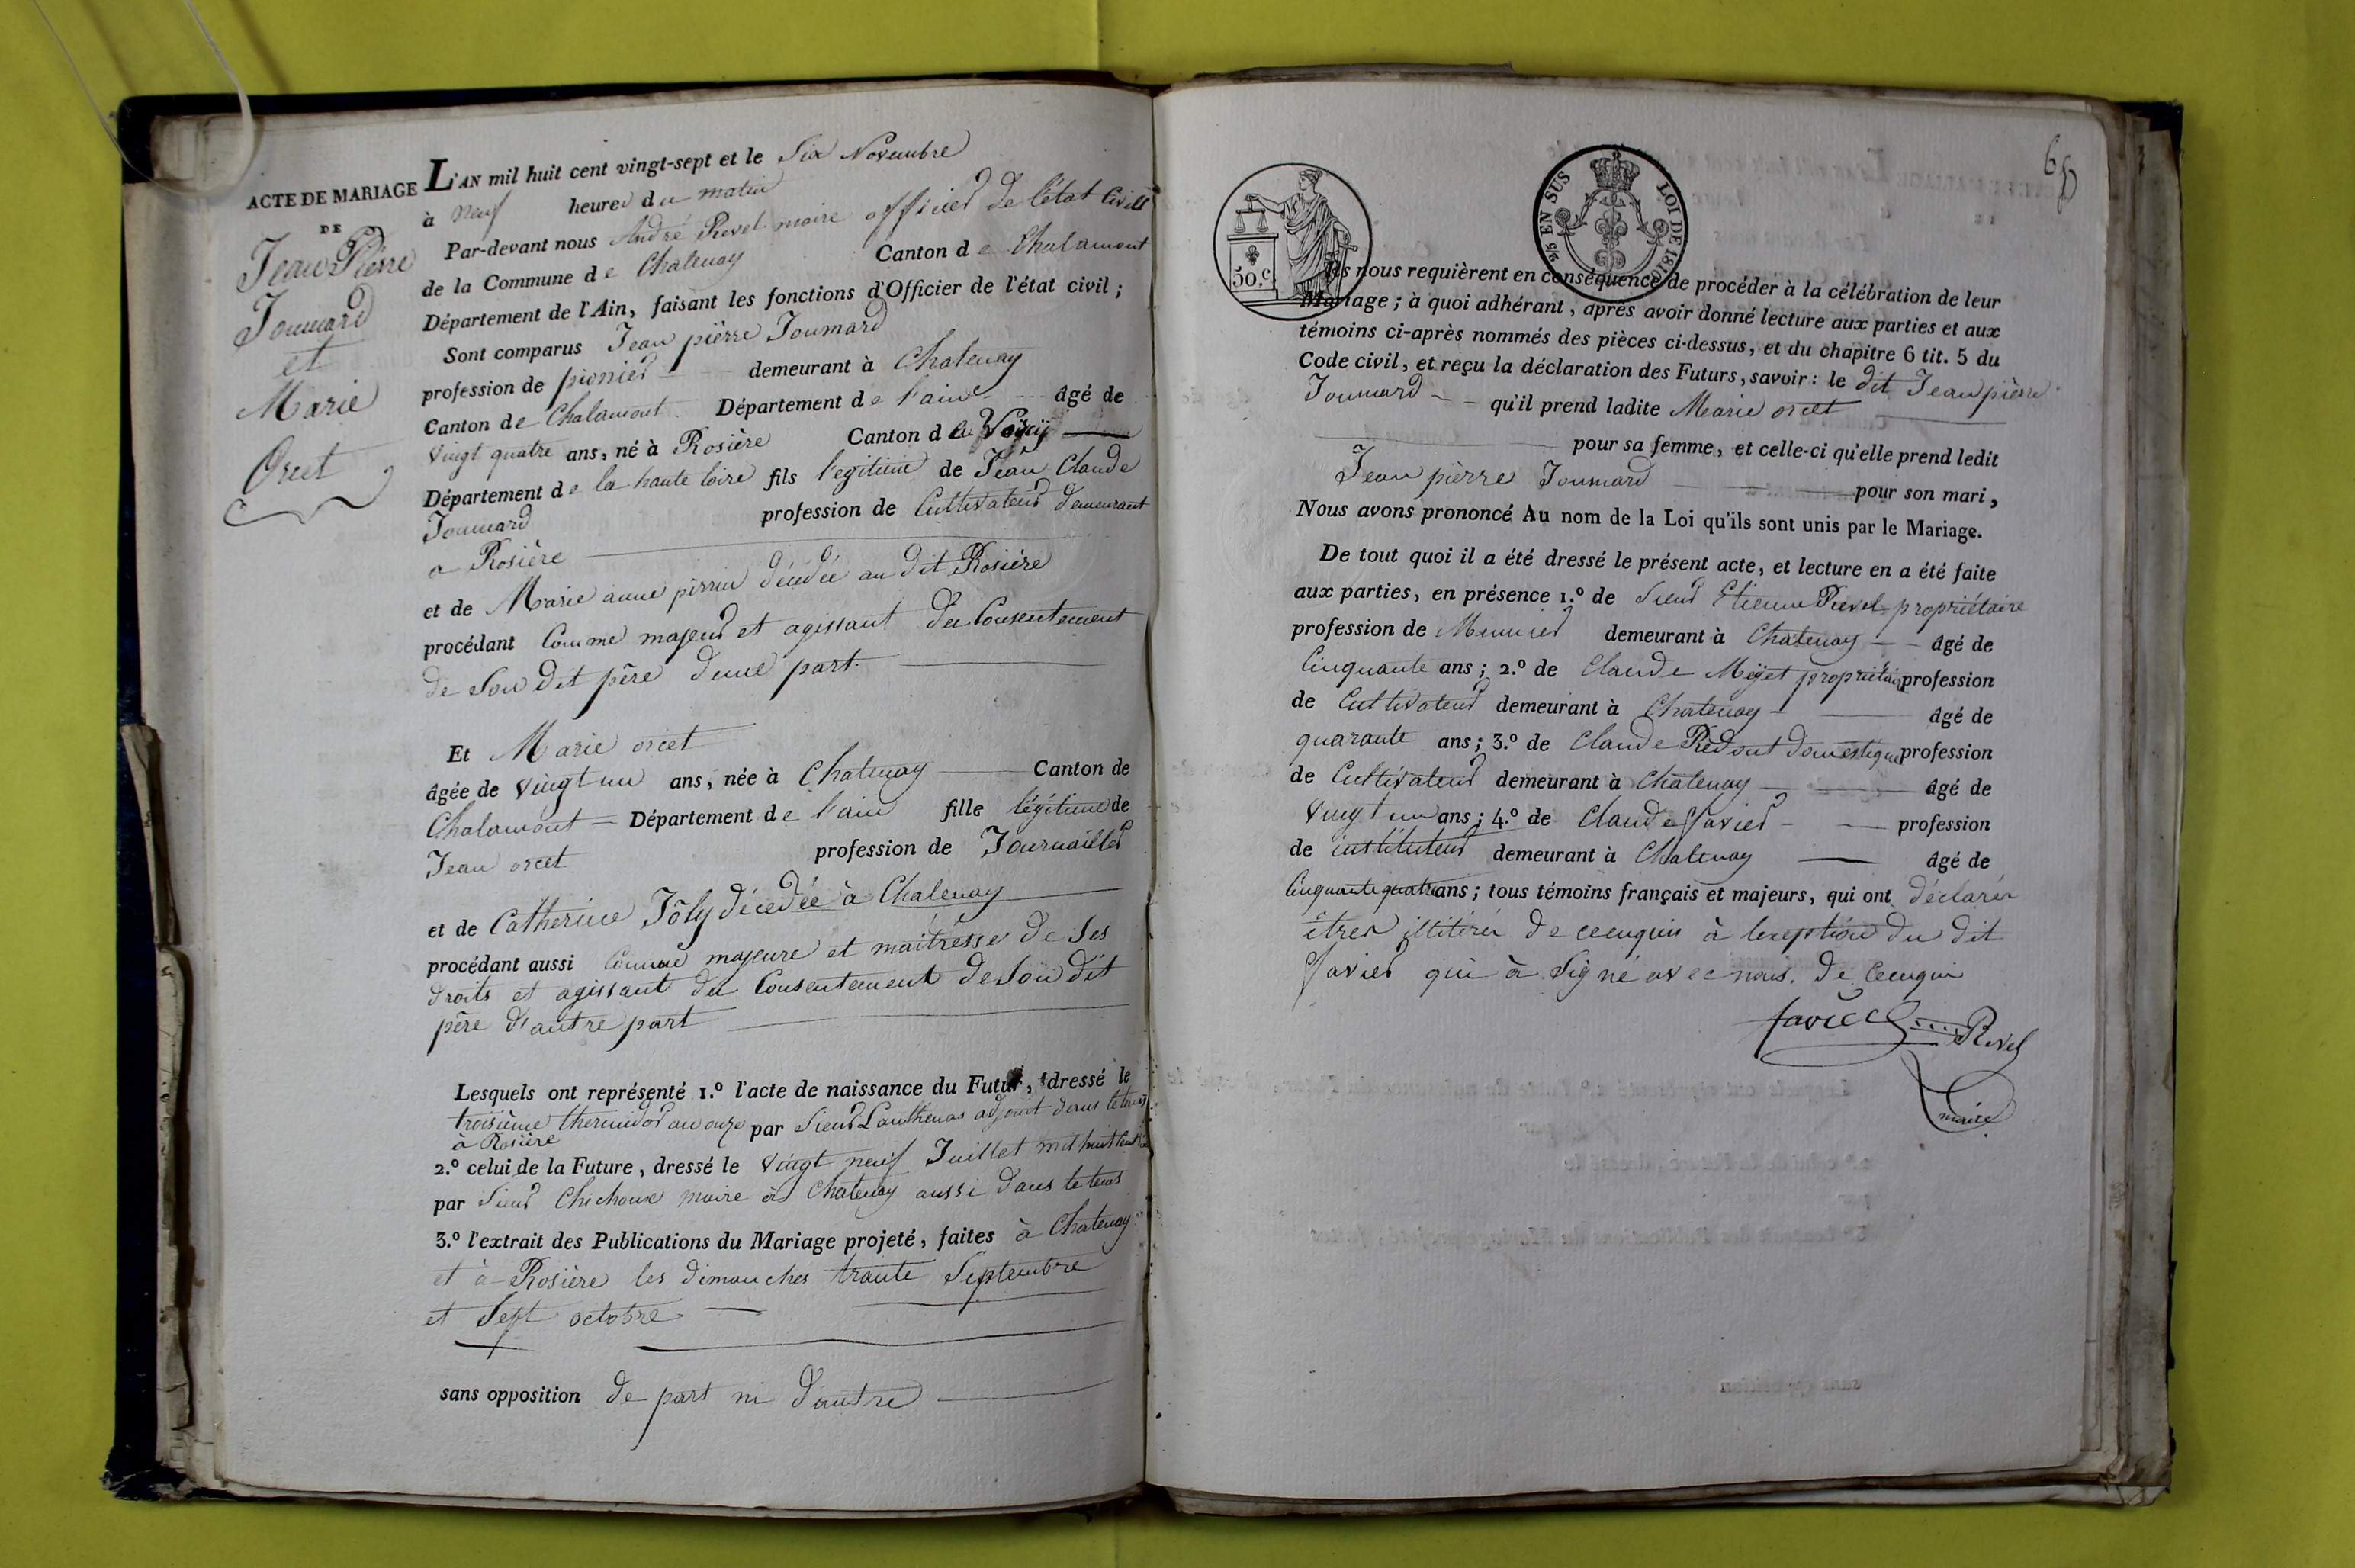 ACTE DE MARIAGE
DE
Jean Pierre
Joumard
et
Marie
Orcet
L'AN mil huit cent vingt-sept et le Six Novembre
à neuf heures du matin
Par-devant nous André Revel maire officier de l'état Civill
de la Commune de Chatenay Canton de Chalamont
Département de l'Ain, faisant les fonctions d'Officier de l'état civil ;
Sont comparus Jean pièrre Joumard
profession de pionier demeurant à Chatenay
Canton de Chalamont Département de l'ain âgé de
vingt quatre ans, né à Rosière Canton de
Département de la haute loire fils legitime de Jean Claude
Joumard profession de Cultivateur demeurant
a Rosière
et de Marie anne décédée au dit Rosière
procédant Comme majeur et agissant du Consentement
de Son dit père d'une part.
Et Marie orcet
âgée de vingt un ans, née à Chatenay Canton de
Chalamont Département de l'ain fille légitime de
Jean orcet profession de Journaillier
et de Catherine Joly décedée à Chatenay
procédant aussi Comme majeure et maitresse de Ses
droits et agissant du Consentement de Son dit
père d'autre part
Lesquels ont représenté 1.º l'acte de naissance du Futur, dressé le
troisième thermidor an onze par Sieur Lanthenas adjoint dans le tems
à Rosière
2.º celui de la Future, dressé le vingt neuf Juillet mil huit cent
par Sieur Chichoux maire à Chatenay aussi dans le tems
3.º l'extrait des Publications du Mariage projeté, faites à Chatenay
et à Rosière les dimanches trante Septembre
et Sept octobre
sans opposition de part ni d'autre
68
50.c
2/5 EN SUS LOI DE 1816
Ils nous requièrent en conséquence de procéder à la célébration de leur
Mariage ; à quoi adhérant, après avoir donné lecture aux parties et aux
témoins ci-après nommés des pièces ci-dessus, et du chapitre 6 tit. 5 du
Code civil, et reçu la déclaration des Futurs, savoir : le dit Jean pièrre
Joumard qu'il prend ladite Marie orcet
pour sa femme, et celle-ci qu'elle prend ledit
Jean pièrre Joumard pour son mari,
Nous avons prononcé Au nom de la Loi qu'ils sont unis par le Mariage.
De tout quoi il a été dressé le présent acte, et lecture en a été faite
aux parties, en présence 1.º de Sieur Etienne Revel propriétaire
profession de Meunier demeurant à Chatenay âgé de
Cinquante ans ; 2.º de Claude propriétaire profession
de Cultivateur demeurant à Chatenay âgé de
quarante ans ; 3.º de Claude domestique profession
de Cultivateur demeurant à Chatenay âgé de
vingt un ans ; 4.º de Claude Javier profession
de instituteur demeurant à Chatenay âgé de
Cinquante quatre ans ; tous témoins français et majeurs, qui ont déclarés
êtres illitérés de ce enquis à lexeption du dit
Javier qui à Signé avec nous. de ce enquis
Javier Revel
maire